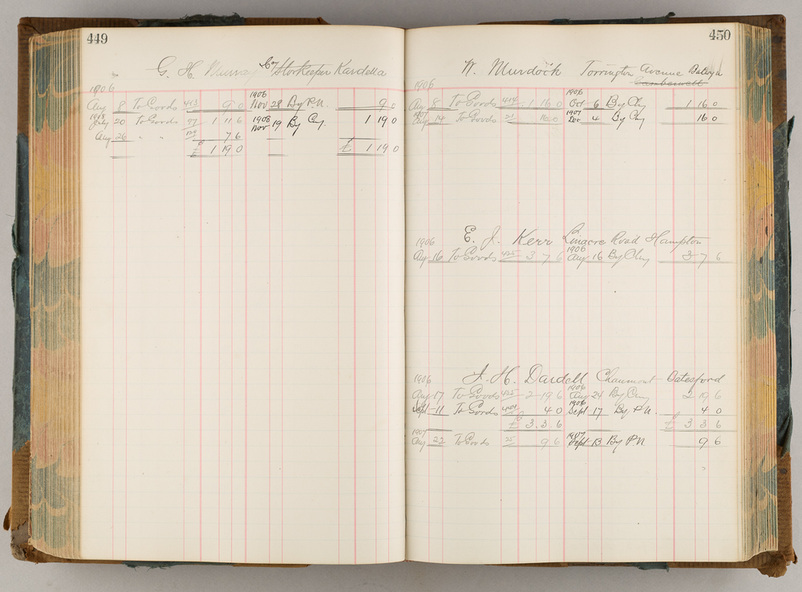 449
G. H. Murray Storekeeper Kardella
1906
Aug 8 To Goods 9 0 1906 Nov 28 By P.N. 9 0
July 20 To Goods 1 11 6 1908 Nov 19 By Chq 1 19 0
Aug 26 " " 7 6
£ 1 19 0 £ 1 19 0
450
W. Murdoch Torrington Avenue
Camberwell
1906
Aug 8 To Goods 1 16 0 1906 Oct 6 By Chq 1 16 0
1907 Aug 19 To Goods 16 0 1907 4 By Chq 16 0
E. J. Kerr Road Hampton
1906
Aug 16 To Goods 3 7 6 1906 Aug 16 By Chq 3 7 6
J. H. Dardell Chaumont Batesford
1906
Aug 17 To Goods 2 19 6 1906 Aug 28 By Chq 2 19 6
Sept 11 To Goods 4 0 1906 Sept 17 By P.N. 4 0
£ 3 3 6 £ 3 3 6
1907 Aug 22 To Goods 9 6 1907 Sept 13 By P.N 9 6